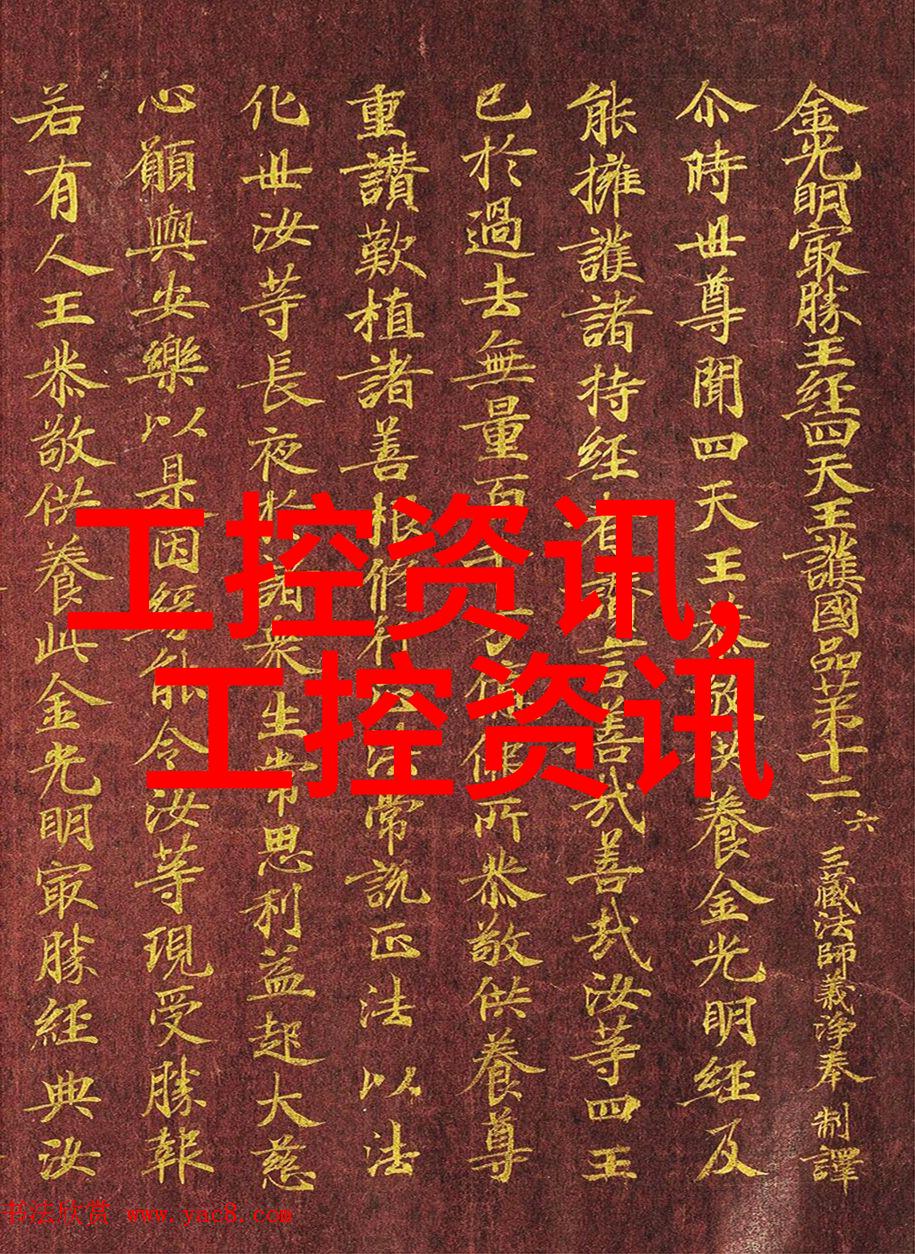 金光明冣勝王經四天王護國品苐十二 六 三藏法師義淨奉 制譯
尒時世尊聞四天王恭敬供養金光明經及
能擁護諸持經者讚言善哉善哉汝等四王
已於過去無量百千万億佛所恭敬供養尊
重讚歎植諸善根修行正法常說正法以法
化世汝等長夜於諸衆生常思利益起大慈
心願與安樂以是因緣能令汝等現受勝報
若有人王恭敬供養此金光明冣勝經典汝
工控资讯,
工控资讯
书法欣赏 www.yac8.com